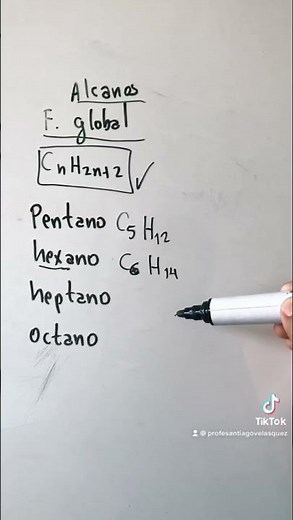 Alcanos
F. global
CnH2n+2
Pentano C5H12
hexano C6H14
heptano
octano
TikTok
@profesantiagovelasquez